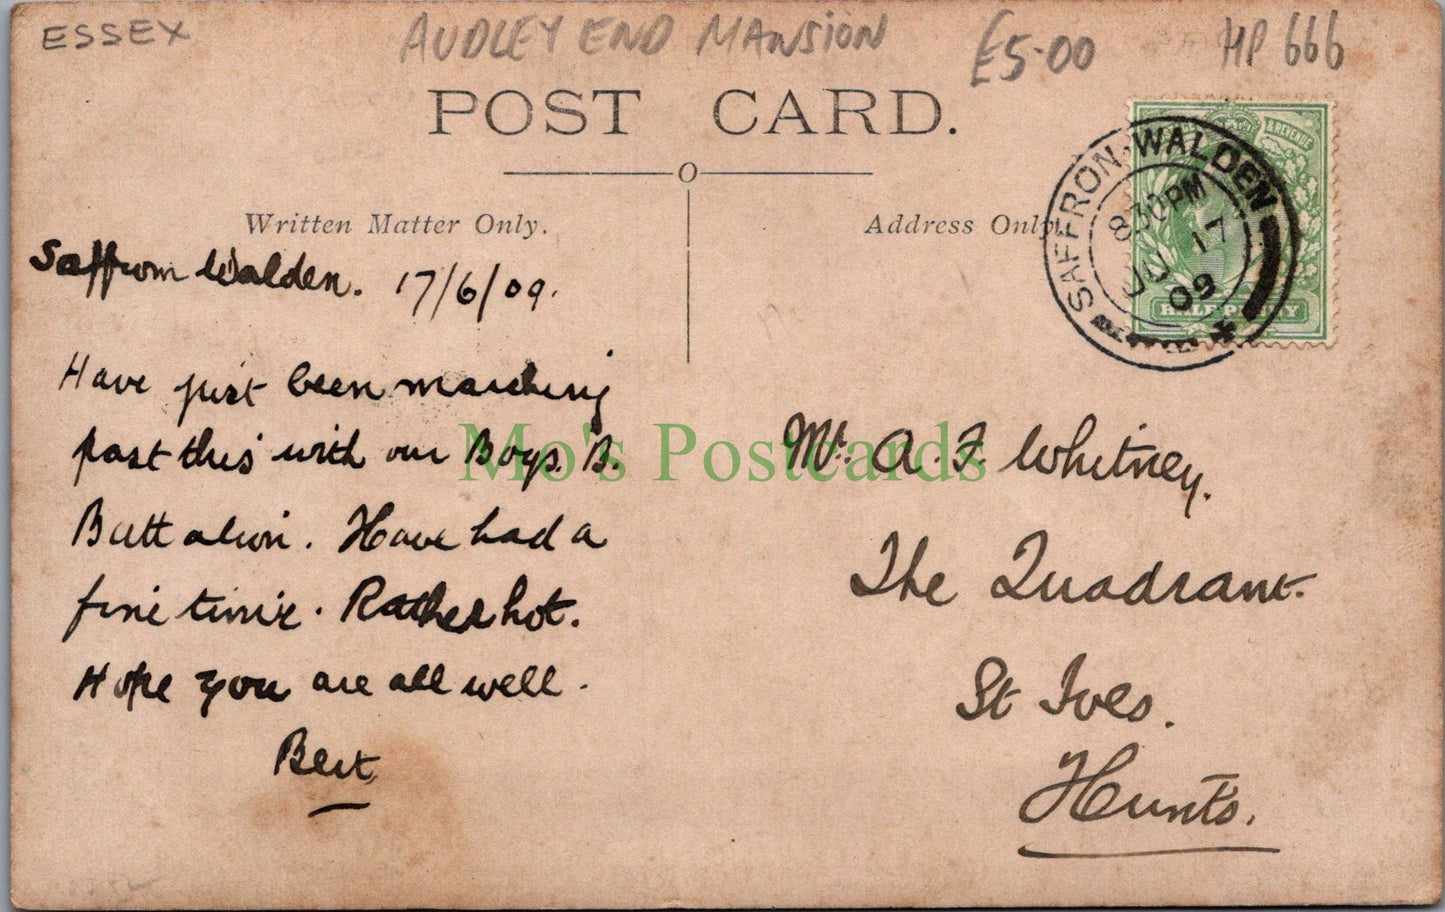 ESSEX
AUDLEY END MANSION
£5-00
HP 666
POST CARD.
Written Matter Only.
Address Only.
SAFFRON·WALDEN
830PM
JU 17
09
& REVENUE
HALF PENNY
Saffron Walden. 17/6/09.
Have just been marching
past this with our Boys. B.
Battalion. Have had a
fine time. Rather hot.
Hope you are all well.
Bert
Mr. A. F. Whitney.
The Quadrant.
St Ives.
Hunts.
Mo's Postcards